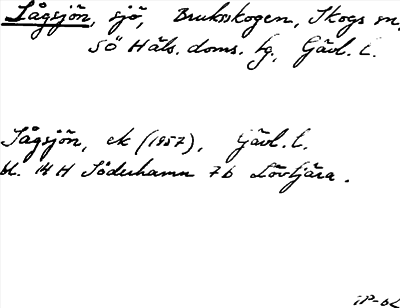 Lågsjön, sjö, Bruksskogen, Skogs sn,
Sö Häls. doms. tg., Gävl. l.
Sågsjön, ek (1957), Gävl. l.
bl. 14 H Söderhamn 7 b Lövtjära.